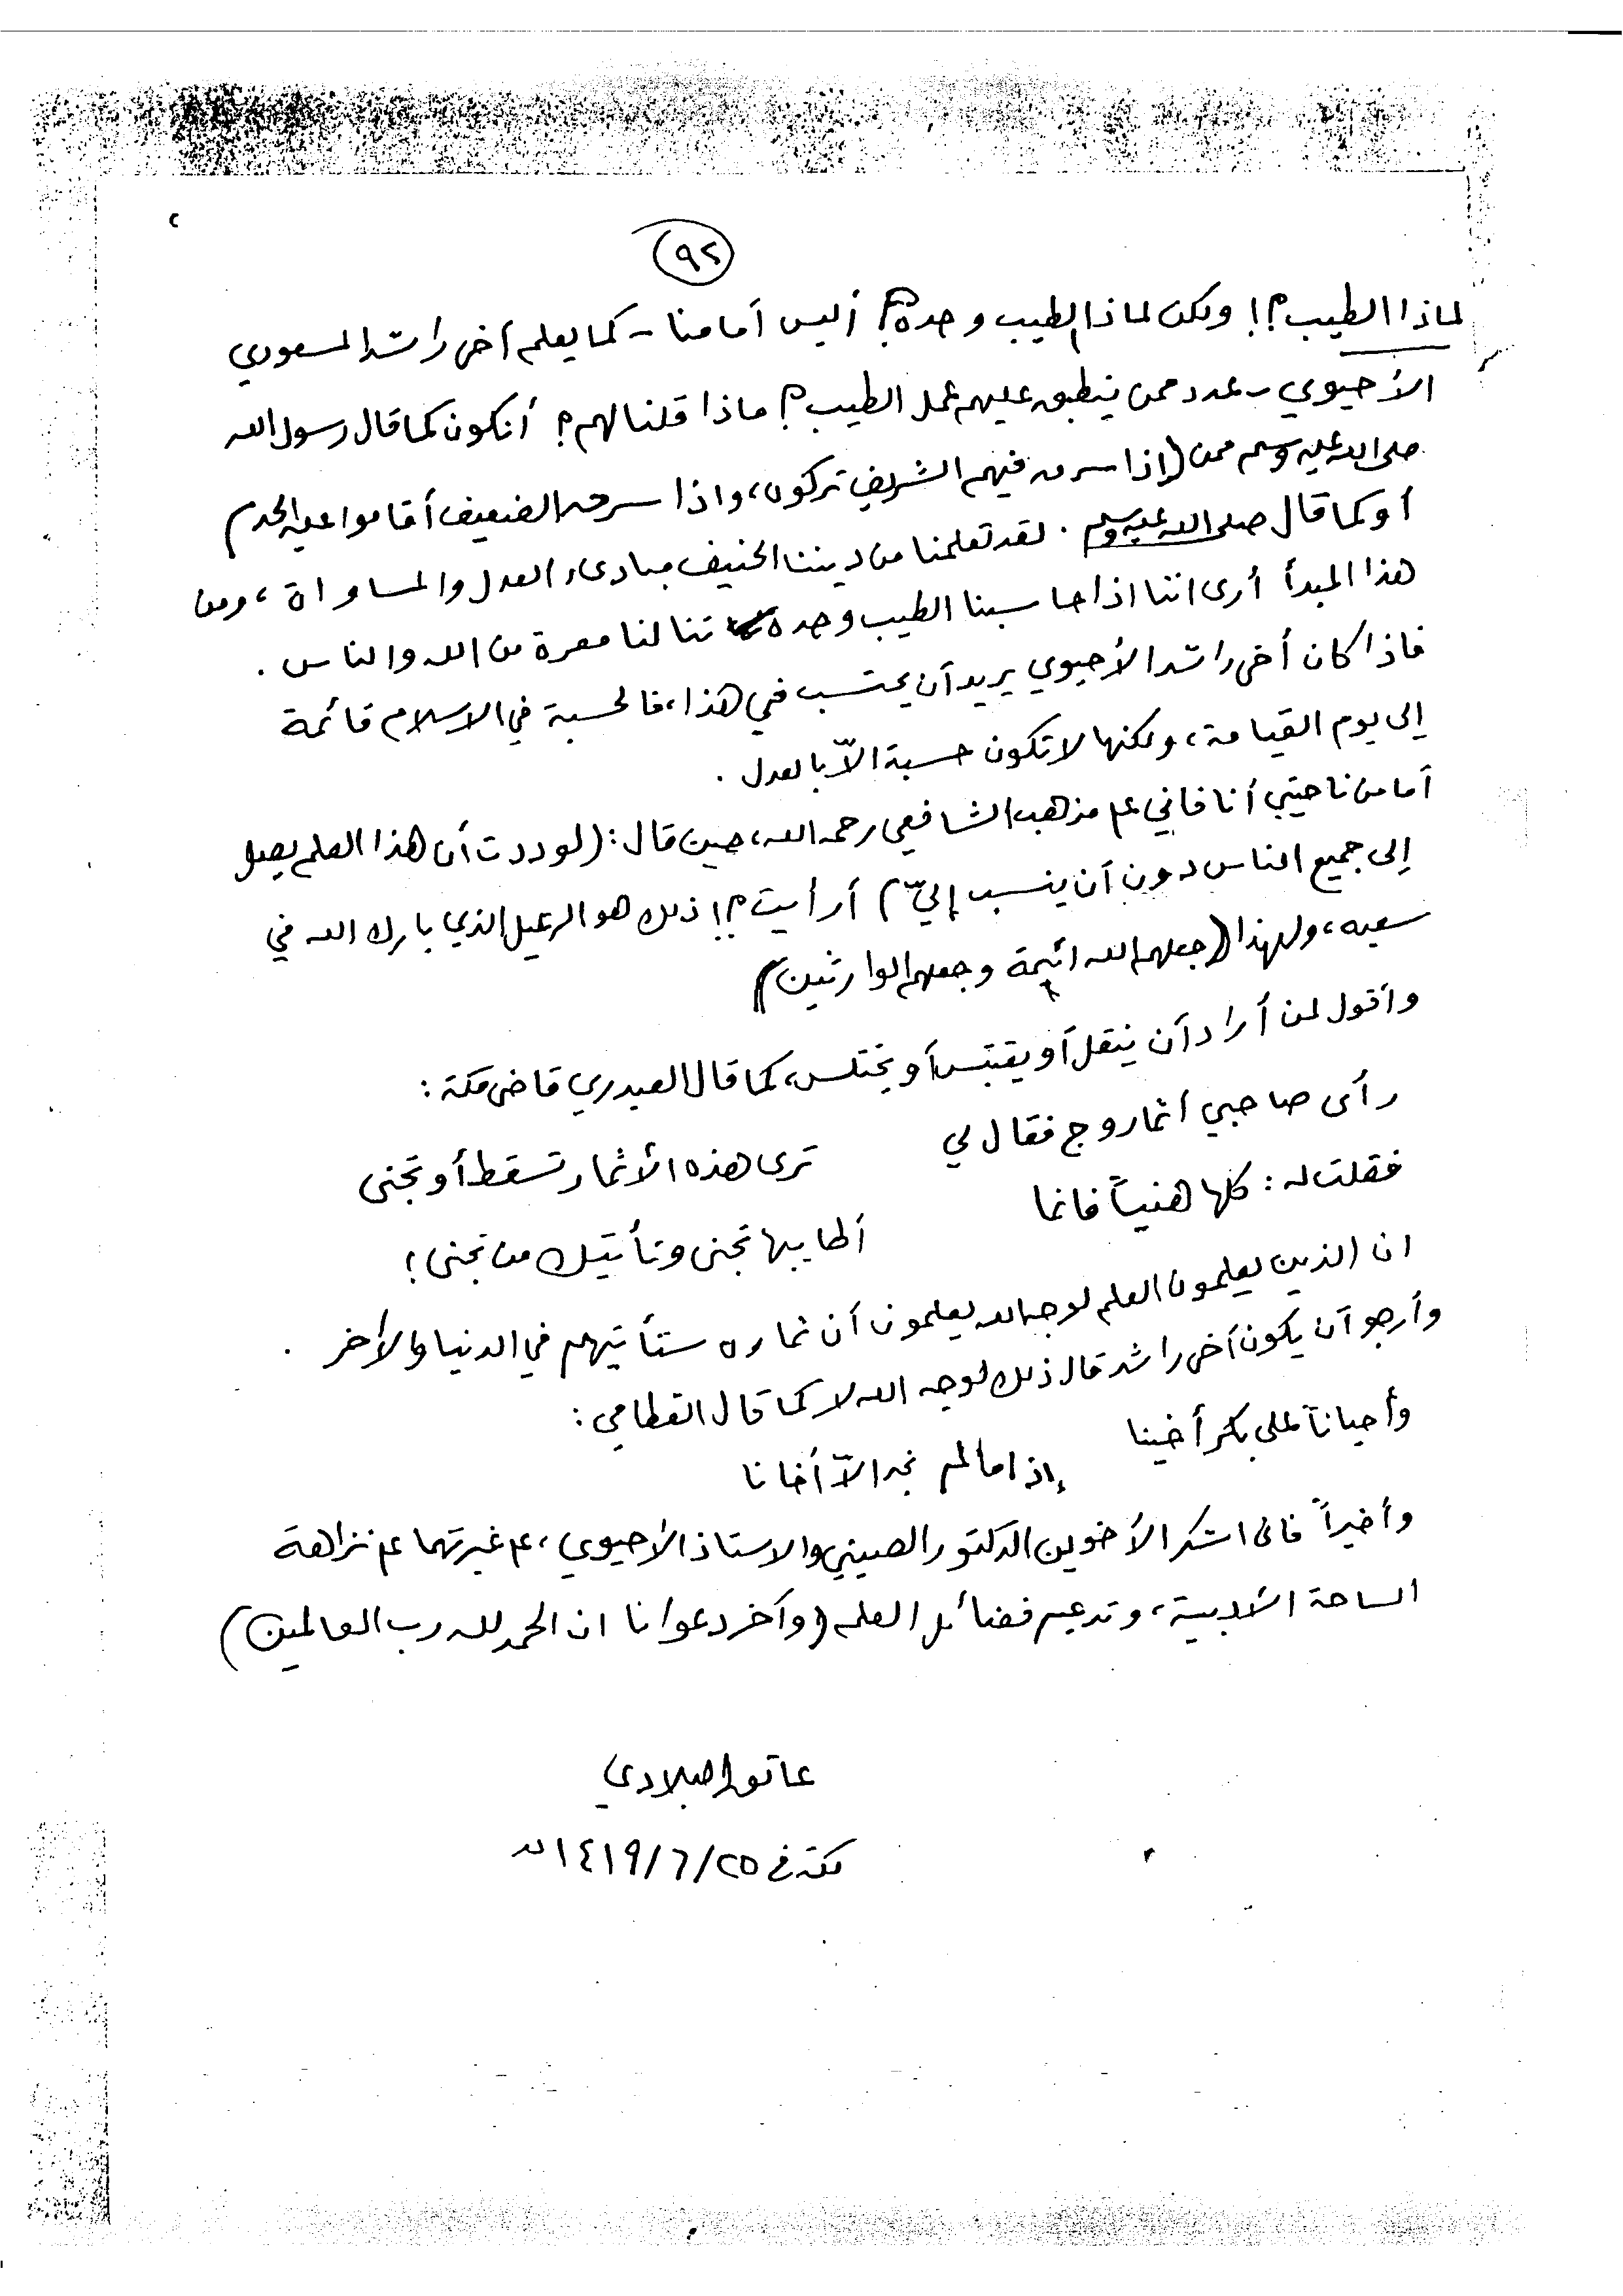 ٢
(٩٢)
لماذا الطيب؟! ولكن لماذا الطيب وحده؟! أليس أمامنا - كما يعلم أخي راشد المسعودي
الأحيوي - عدد ممن ينطبق عليهم عمل الطيب؟ ماذا قلنا لهم؟ أنكون كما قال رسول الله
صلى الله عليه وسلم ممن (إذا سرق فيهم الشريف تركوه، واذا سرق الضعيف أقاموا عليه الحد)
أو كما قال صلى الله عليه وسلم. لقد تعلمنا من ديننا الحنيف مبادىء العدل والمساواة، ومن
هذا المبدأ أرى اننا اذا حاسبنا الطيب وحده تنالنا معرة من الله والناس.
فاذا كان أخي راشد الأحيوي يريد أن يحتسب في هذا، فالحسبة في الاسلام قائمة
إلى يوم القيامة، ولكنها لا تكون حسبة الاّ بالعدل.
أما من ناحيتي أنا فاني على مذهب الشافعي رحمه الله، حين قال: (لوددت أن هذا العلم يصل
إلى جميع الناس دون أن ينسب إليّ) أرأيت؟! ذلك هو الرعيل الذي بارك الله في
سعيه، ولهذا (جعلهم الله ائمة وجعلهم الوارثين)
وأقول لمن أراد أن ينقل أو يقتبس أو يختلس، كما قال العبدري قاضي مكة:
رأى صاحبي أثمار وج فقال لي
ترى هذه الأثمار تسقط أو تجنى
فقلت له: كلها هنيئاً فانما
أطايبها تجنى وتأتيك من تجنى!
ان الذين يعلمون العلم لوجه الله يعلمون أن ثماره ستأتيهم في الدنيا والأخر.
وأرجو أن يكون أخي راشد قال ذلك لوجه الله لا كما قال القطامي:
وأحياناً على بكر أخينا
إذا ما لم نجد الاّ أخانا
وأخيراً فاني اشكر الأخوين الدكتور الصيني والاستاذ الأحيوي، على غيرتهما على نزاهة
الساحة الأدبية، وتدعيم فضائل العلم (وآخر دعوانا ان الحمد لله رب العالمين)
عاتق البلادي
مكة في ١٤١٩/٦/٢٥ هـ